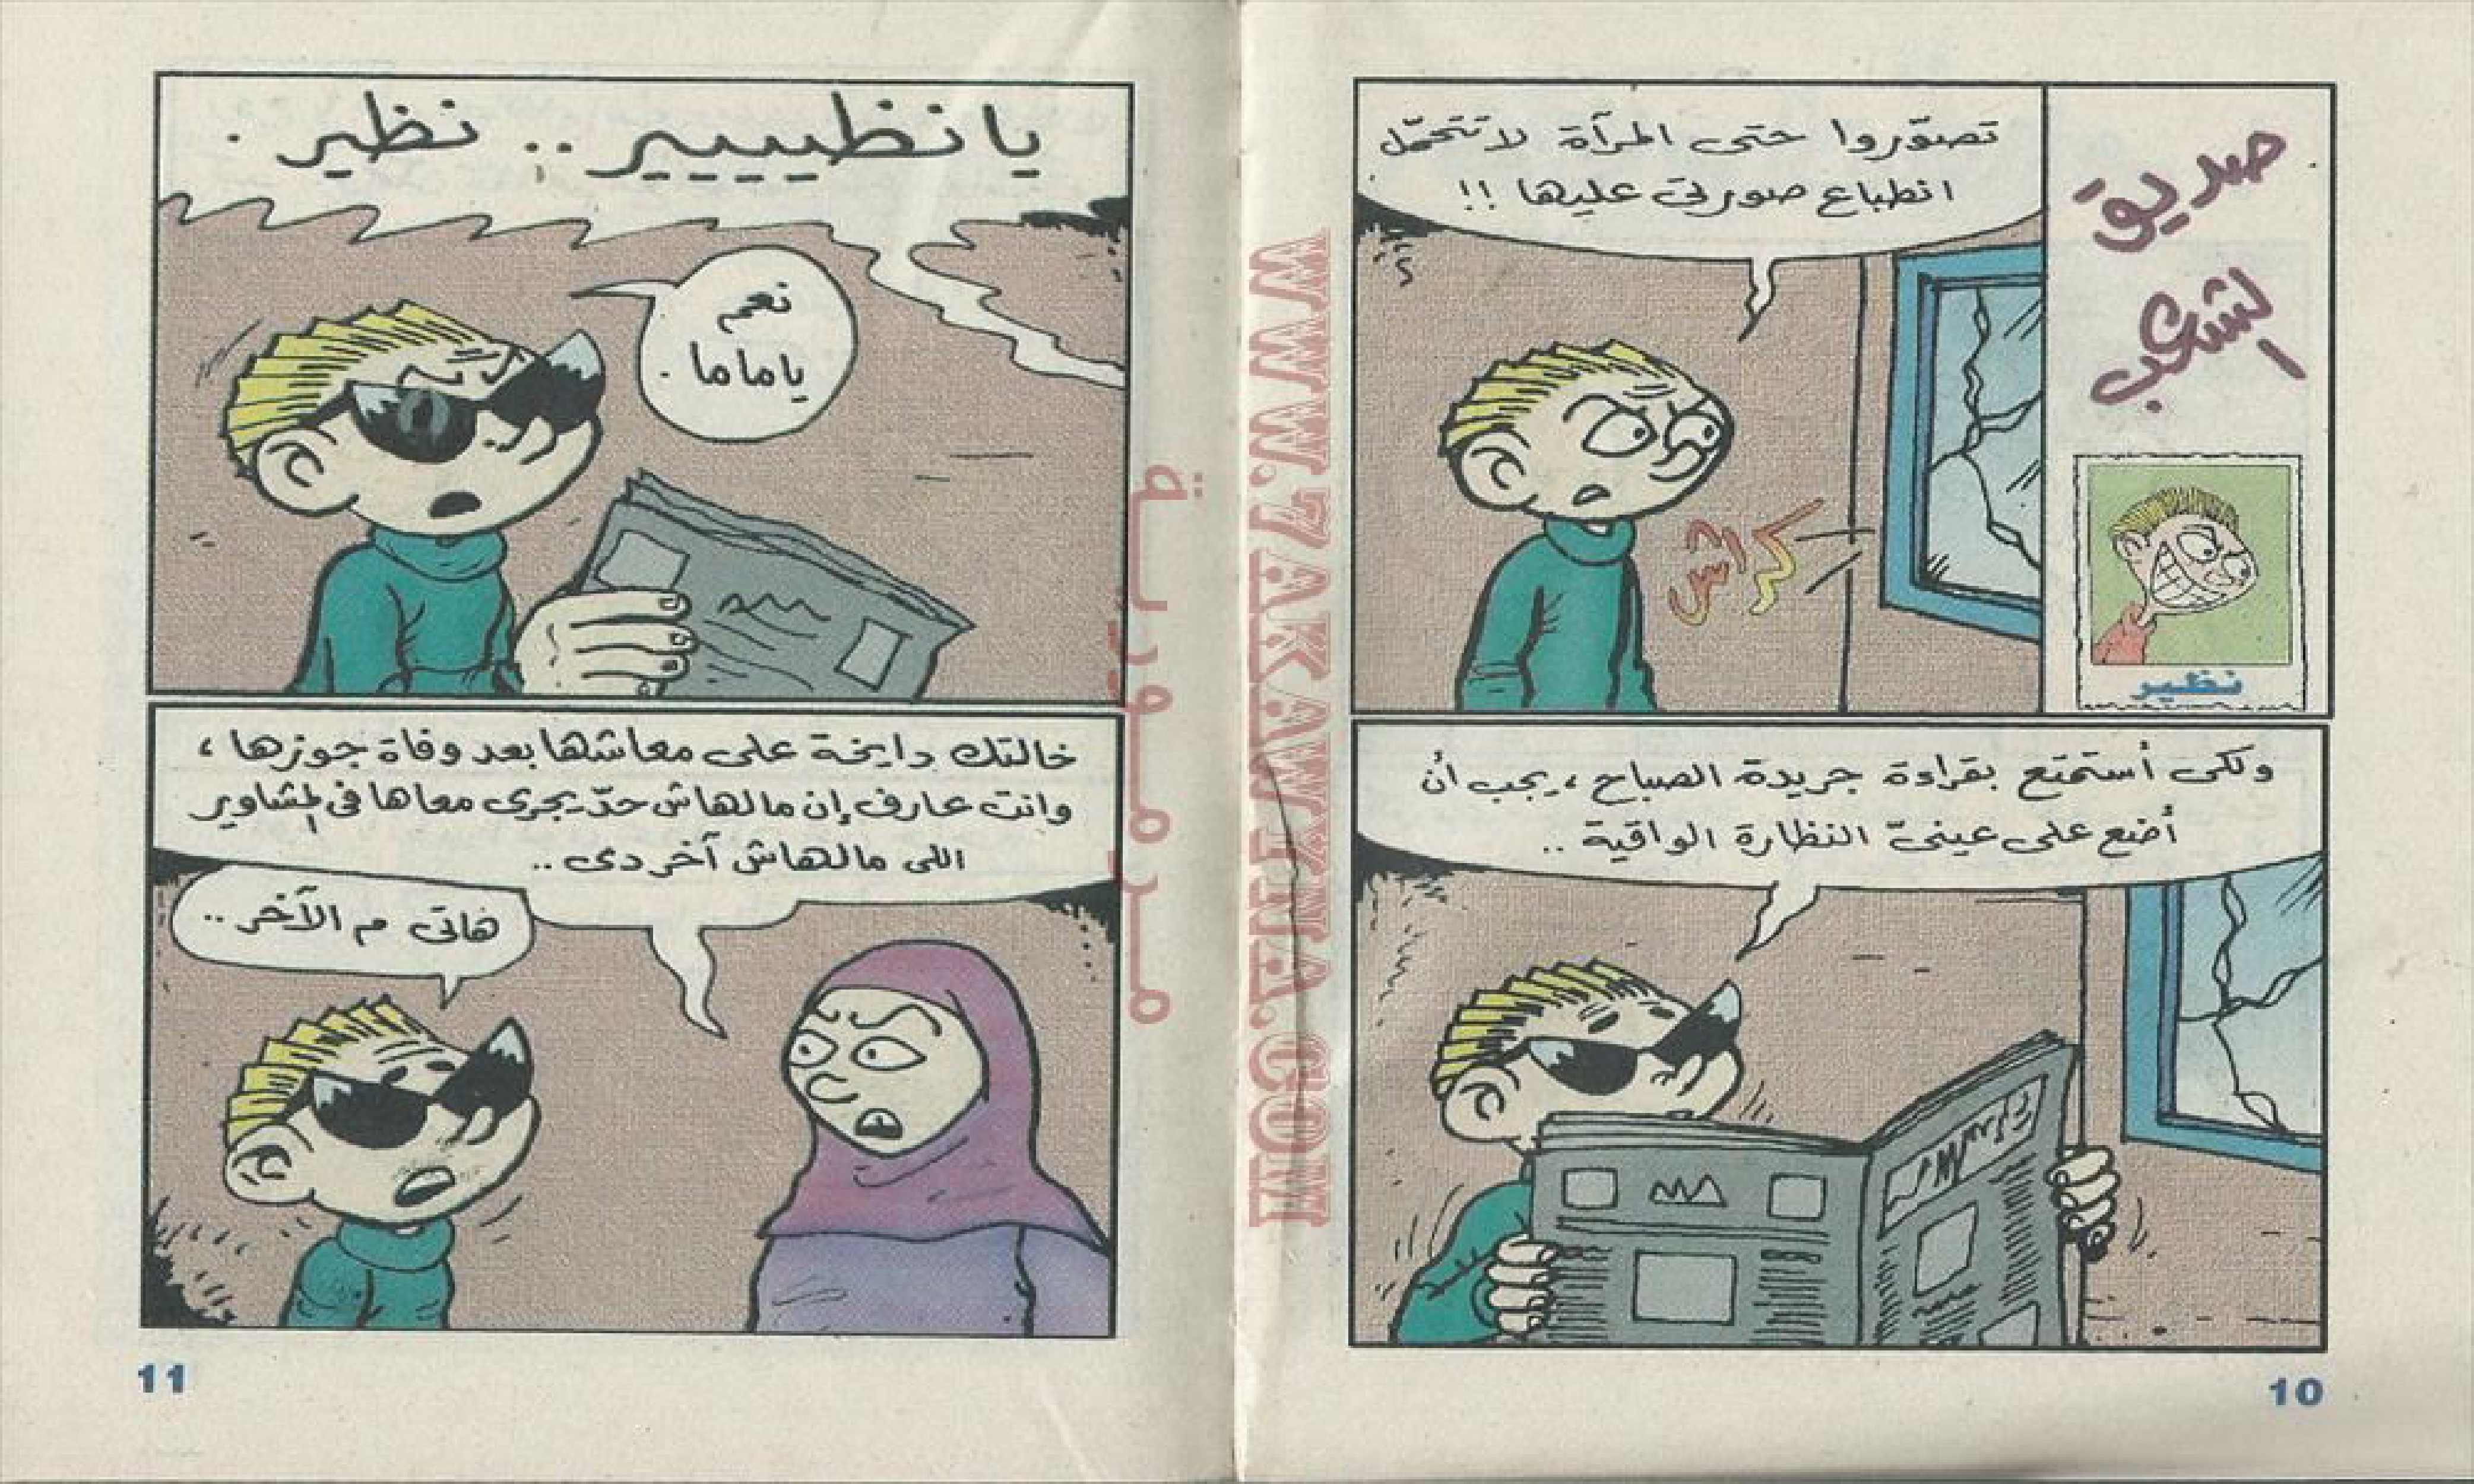 صديق
الشعب
نظير
تصوّروا حتى المرآة لا تتحمّل
انطباع صورتى عليها !!
كراش
ولكى أستمتع بقراءة جريدة الصباح ، يجب أن
أضع على عينىّ النظارة الواقية ..
10
يا نظيييير .. نظير .
نعم
يا ماما .
خالتك دايخة على معاشها بعد وفاة جوزها ،
وانت عارف إن مالهاش حدّ يجرى معاها فى المشاوير
اللى مالهاش آخر دى ..
هاتى م الآخر ..
11
مرمورية
WWW.7AKAWINA.COM